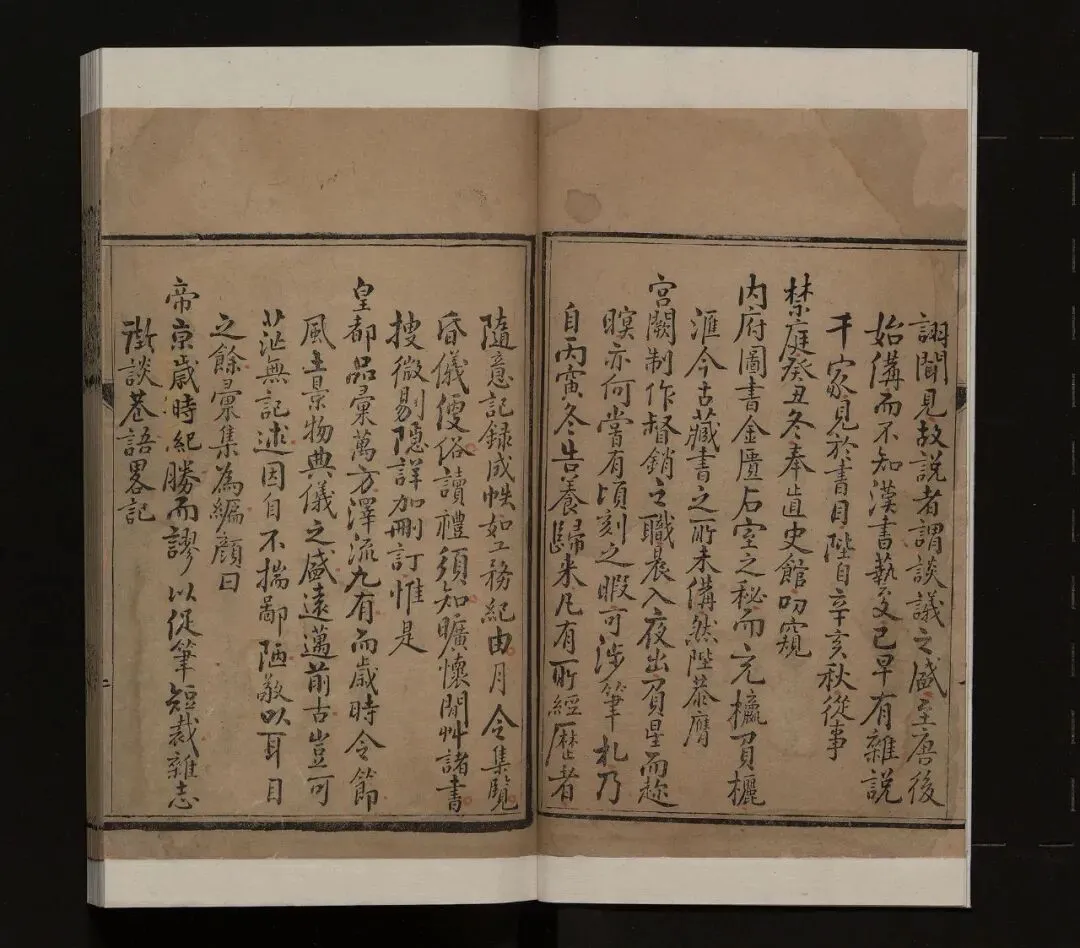 詡聞見故說者謂談議之盛至唐後
始備而不知漢書藝文已早有雜說
千家見於書目陛自辛亥秋從事
禁庭癸丑冬奉直史館叨窺
內府圖書金匱石室之秘而充貫欐
滙今古藏書之所未備然陛恭膺
宮闕制作督銷之職晨入夜出負星而趂
暝亦何嘗有頃刻之暇可涉筆札乃
自丙寅冬告養歸来凡有所經歷者
隨意記録成帙如工務紀由月令集覽
昏儀便俗讀禮須知曠懷閒艸諸書
搜微剔隱詳加刪訂惟是
皇都品彙萬方澤流九有而歲時令節
風土景物典儀之盛遠邁前古豈可
茫無記述因自不揣鄙陋敬以耳目
之餘彙集為編顏曰
帝京歲時紀勝而謬以促筆短裁雜志
街談巷語畧記
二